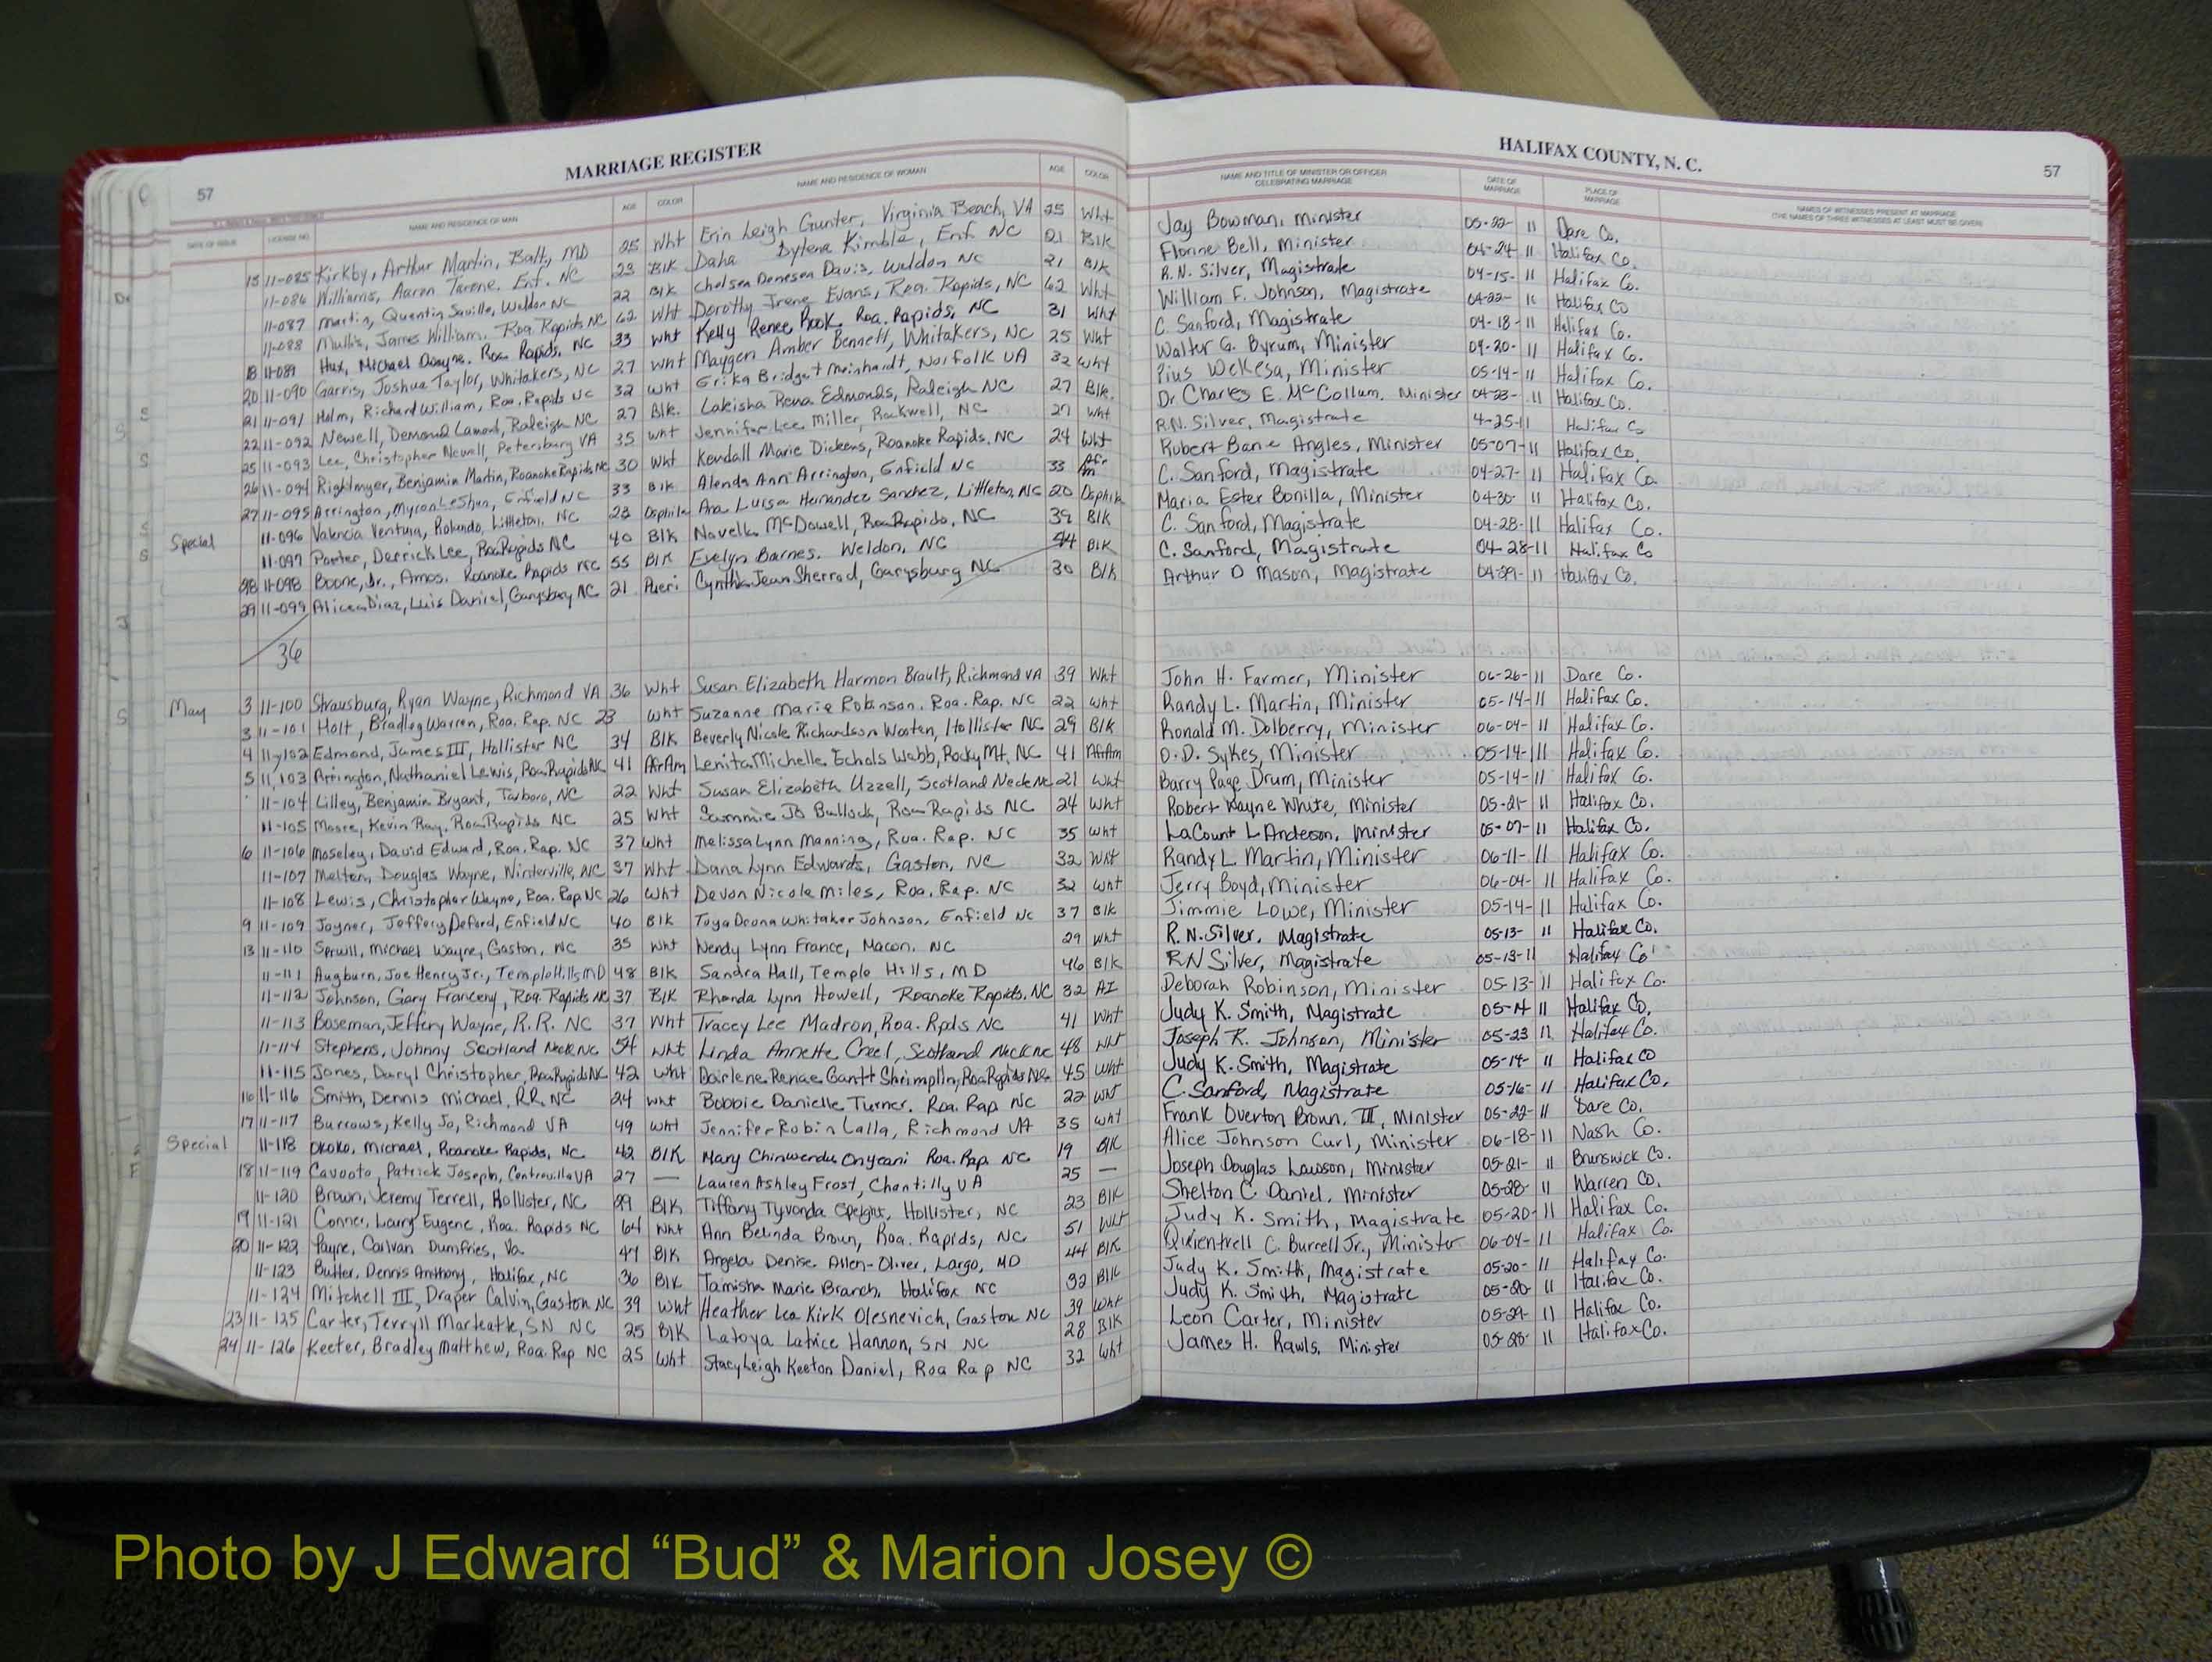 MARRIAGE REGISTER
HALIFAX COUNTY, N. C.
57
57
DATE OF ISSUE LICENSE NO. NAME AND RESIDENCE OF MAN AGE COLOR NAME AND RESIDENCE OF WOMAN AGE COLOR NAME AND TITLE OF MINISTER OR OFFICER CELEBRATING MARRIAGE DATE OF MARRIAGE PLACE OF MARRIAGE NAMES OF WITNESSES PRESENT AT MARRIAGE (THE NAMES OF THREE WITNESSES AT LEAST MUST BE GIVEN)
15 11-085 Kirkby, Arthur Martin, Balt, MD 25 Wht Erin Leigh Gunter, Virginia Beach, VA 25 Wht Jay Bowman, Minister 05-22-11 Dare Co.
11-086 Williams, Aaron Tarone. Enf. NC 23 Blk Daha Dylena Kimble, Enf. NC 21 Blk Florine Bell, Minister 04-24-11 Halifax Co.
11-087 Martin, Quentin Saville, Weldon NC 22 Blk Chelsea Denesea Davis, Weldon NC 21 Blk R.N. Silver, Magistrate 04-15-11 Halifax Co.
11-088 Mullis, James William, Roa. Rapids NC 62 Wht Dorothy Irene Evans, Roa. Rapids, NC 62 Wht William F. Johnson, Magistrate 04-22-11 Halifax Co
18 11-089 Hux, Michael Dwayne. Roa. Rapids, NC 33 Wht Kelly Renee Book, Roa. Rapids, NC 31 Wht C. Sanford, Magistrate 04-18-11 Halifax Co.
20 11-090 Garris, Joshua Taylor, Whitakers, NC 27 Wht Maygen Amber Bennett, Whitakers, NC 25 Wht Walter G. Byrum, Minister 04-20-11 Halifax Co.
21 11-091 Holm, Richard William, Roa. Rapids NC 32 Wht Erika Bridget Meinhardt, Norfolk VA 32 Wht Pius Wekesa, Minister 05-14-11 Halifax Co.
22 11-092 Newell, Demond Lamont, Raleigh NC 27 Blk. Lakeisha Rena Edmonds, Raleigh NC 27 Blk. Dr Charles E. McCollum, Minister 04-23-11 Halifax Co.
25 11-093 Lee, Christopher Newell, Petersburg VA 35 Wht Jennifer Lee Miller, Rockwell, NC 27 Wht R.N. Silver, Magistrate 4-25-11 Halifax Co
26 11-094 Rightmyer, Benjamin Martin, Roanoke Rapids NC 30 Wht Kendall Marie Dickens, Roanoke Rapids, NC 24 Wht Robert Bane Angles, Minister 05-07-11 Halifax Co.
27 11-095 Arrington, Myron LeShun, Enfield NC 33 Blk Alenda Ann Arrington, Enfield NC 33 Afr Am C. Sanford, Magistrate 04-27-11 Halifax Co.
11-096 Valencia Ventura, Rolando, Littleton, NC 23 Ana Luisa Hernandez Sanchez, Littleton, NC 20 Maria Ester Bonilla, Minister 04-30-11 Halifax Co.
Special 11-097 Porter, Derrick Lee, Roa Rapids NC 40 Blk Novella McDowell, Roa Rapids, NC 39 Blk C. Sanford, Magistrate 04-28-11 Halifax Co.
28 11-098 Boone, Jr., Amos. Roanoke Rapids NC 55 Blk Evelyn Barnes. Weldon, NC 54 Blk C. Sanford, Magistrate 04-28-11 Halifax Co
29 11-099 Alicea Diaz, Luis Daniel, Garysburg NC 21 Cynthia Jean Sherrod, Garysburg NC 30 Blk Arthur D Mason, Magistrate 04-29-11 Halifax Co.
36
May 3 11-100 Strausburg, Ryan Wayne, Richmond VA 36 Wht Susan Elizabeth Harmon Brault, Richmond VA 39 Wht John H. Farmer, Minister 06-26-11 Dare Co.
3 11-101 Holt, Bradley Warren, Roa. Rap. NC 23 Wht Suzanne Marie Robinson. Roa. Rap. NC 22 Wht Randy L. Martin, Minister 05-14-11 Halifax Co.
4 11-102 Edmond, James III, Hollister NC 34 Blk Beverly Nicole Richardson Wooten, Hollister NC 29 Blk Ronald M. Dolberry, Minister 06-04-11 Halifax Co.
5 11-103 Arrington, Nathaniel Lewis, Roa Rapids NC 41 AfrAm Lenita Michelle Echols Webb, Rocky Mt. NC 41 AfrAm O.D. Sykes, Minister 05-14-11 Halifax Co.
11-104 Lilley, Benjamin Bryant, Tarboro, NC 22 Wht Susan Elizabeth Uzzell, Scotland Neck NC 21 Wht Barry Page Drum, Minister 05-14-11 Halifax Co.
11-105 Moore, Kevin Ray, Roa Rapids NC 25 Wht Sammie Jo Bullock, Roa Rapids NC 24 Wht Robert Wayne White, Minister 05-21-11 Halifax Co.
6 11-106 Moseley, David Edward, Roa. Rap. NC 37 Wht Melissa Lynn Manning, Roa. Rap. NC 35 Wht LaCount L Anderson, Minister 05-07-11 Halifax Co.
11-107 Melton, Douglas Wayne, Winterville, NC 37 Wht Dana Lynn Edwards, Gaston, NC 32 Wht Randy L. Martin, Minister 06-11-11 Halifax Co.
11-108 Lewis, Christopher Wayne, Roa. Rap NC 26 Wht Devon Nicole Miles, Roa. Rap. NC 32 Wht Jerry Boyd, Minister 06-04-11 Halifax Co.
9 11-109 Joyner, Jeffery Deford, Enfield NC 40 Blk Toya Deona Whitaker Johnson, Enfield NC 37 Blk Jimmie Lowe, Minister 05-14-11 Halifax Co.
13 11-110 Spruill, Michael Wayne, Gaston, NC 35 Wht Wendy Lynn France, Macon, NC 29 Wht R.N. Silver, Magistrate 05-13-11 Halifax Co.
11-111 Augburn, Joe Henry Jr., Temple Hills MD 48 Blk Sandra Hall, Temple Hills, MD 46 Blk R N Silver, Magistrate 05-13-11 Halifax Co
11-112 Johnson, Gary Franceny, Roa. Rapids NC 37 Blk Rhonda Lynn Howell, Roanoke Rapids, NC 32 AI Deborah Robinson, Minister 05-13-11 Halifax Co.
11-113 Boseman, Jeffery Wayne, R.R. NC 37 Wht Tracey Lee Madron, Roa. Rpds NC 41 Wht Judy K. Smith, Magistrate 05-14 11 Halifax Co.
11-114 Stephens, Johnny Scotland Neck NC 54 Wht Linda Annette Creel, Scotland Neck NC 48 Wht Joseph K. Johnson, Minister 05-23 11 Halifax Co.
11-115 Jones, Daryl Christopher, Roa Rapids NC 42 Wht Darlene Renae Gantt Shrimplin, Roa Rapids NC 45 Wht Judy K. Smith, Magistrate 05-14-11 Halifax Co
16 11-116 Smith, Dennis Michael, R.R. NC 24 Wht Bobbie Danielle Turner. Roa. Rap NC 22 Wht C. Sanford, Magistrate 05-16-11 Halifax Co.
17 11-117 Burrows, Kelly Jo, Richmond VA 49 Wht Jennifer Robin Lalla, Richmond VA 35 Wht Frank Overton Brown, III, Minister 05-22-11 Dare Co.
Special 11-118 Okoko, Michael, Roanoke Rapids, NC 42 Blk Mary Chinwendu Onyeani Roa. Rap. NC 19 Blk Alice Johnson Curl, Minister 06-18-11 Nash Co.
18 11-119 Cavooto, Patrick Joseph, Centreville VA 27 — Lauren Ashley Frost, Chantilly VA 25 — Joseph Douglas Lawson, Minister 05-21-11 Brunswick Co.
11-120 Brown, Jeremy Terrell, Hollister, NC 29 Blk Tiffany Tyvonda Speight, Hollister, NC 23 Blk Shelton C. Daniel, Minister 05-28-11 Warren Co.
19 11-121 Conner, Larry Eugene, Roa. Rapids NC 64 Wht Ann Belinda Brown, Roa. Rapids, NC 51 Wht Judy K. Smith, Magistrate 05-20-11 Halifax Co.
20 11-122 Payne, Carlvan Dumfries, Va 47 Blk Angela Denise Allen-Oliver, Largo, MD 44 Blk Quientrell C. Burrell Jr., Minister 06-04-11 Halifax Co.
11-123 Butler, Dennis Anthony, Halifax, NC 36 Blk Tamisha Marie Branch, Halifax NC 32 Blk Judy K. Smith, Magistrate 05-20-11 Halifax Co.
11-124 Mitchell III, Draper Calvin, Gaston NC 39 Wht Heather Lea Kirk Olesnevich, Gaston NC 39 Wht Judy K. Smith, Magistrate 05-20-11 Halifax Co.
23 11-125 Carter, Terryll Marteatle, SN NC 25 Blk Latoya Latrice Hannon, SN NC 28 Blk Leon Carter, Minister 05-29-11 Halifax Co.
24 11-126 Keeter, Bradley Matthew, Roa. Rap NC 25 Wht Stacy Leigh Keeton Daniel, Roa Rap NC 32 Wht James H. Rawls, Minister 05-28-11 Halifax Co.
Photo by J Edward “Bud” & Marion Josey ©